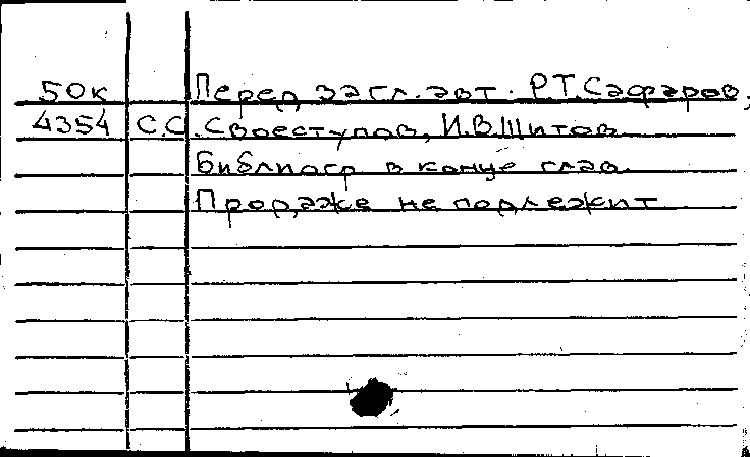 50к Перед загл. авт. Р.Т.Сафаров,
4354 С.С.Своеступов, И.В.Шитов
Библиогр в конце глав
Продаже не подлежит